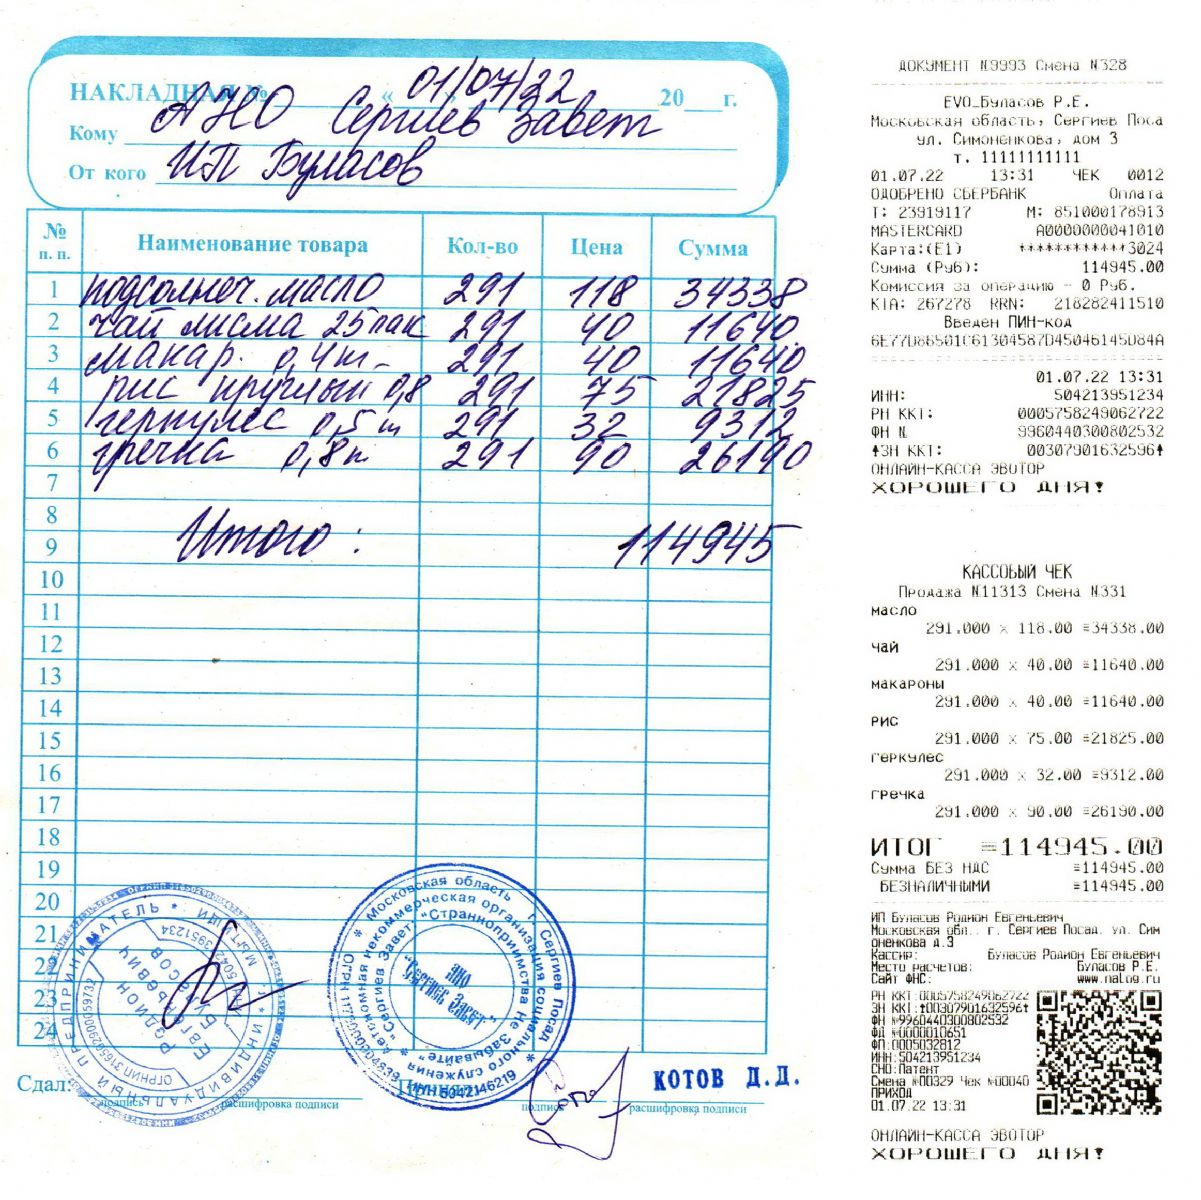 НАКЛАДНАЯ № «01/07/22» 20 г.
Кому АНО Сергиев Завет
От кого ИП Буласов
№ п. п. Наименование товара Кол-во Цена Сумма
1 подсолнеч. масло 291 118 34338
2 чай лисма 25 пак 291 40 11640
3 макар. 0,4 т 291 40 11640
4 рис круглый 0,8 291 75 21825
5 геркулес 0,5 т 291 32 9312
6 гречка 0,8 т 291 90 26190
7
8
9 Итого: 114945
10
11
12
13
14
15
16
17
18
19
20
21
22
23
24
Сдал: Принял:
подпись расшифровка подписи подпись расшифровка подписи
КОТОВ Д.Д.
* ИНДИВИДУАЛЬНЫЙ ПРЕДПРИНИМАТЕЛЬ *
Родион
Евгеньевич
* Московская область г. Сергиев Посад
Автономная некоммерческая организация социального служения
"Сергиев Завет" "Странноприимства Не Забывайте"
ИНН 5042146219
АНО
"Сергиев Завет"
ДОКУМЕНТ N9993 Смена N328
EVO_Буласов Р.Е.
Московская область, Сергиев Поса
ул. Симоненкова, дом 3
т. 11111111111
01.07.22 13:31 ЧЕК 0012
ОДОБРЕНО СБЕРБАНК Оплата
Т: 23919117 М: 851000178913
MASTERCARD A0000000041010
Карта:(E1) ************3024
Сумма (Руб): 114945.00
Комиссия за операцию - 0 Руб.
К1А: 267278 RRN: 218282411510
Введен ПИН-код
6E77D86501C61304587D45046145D84A
01.07.22 13:31
ИНН: 504213951234
РН ККТ: 0005758249062722
ФН № 9960440300802532
↑ЗН ККТ: 00307901632596↑
ОНЛАЙН-КАССА ЭВОТОР
ХОРОШЕГО ДНЯ!
КАССОВЫЙ ЧЕК
Продажа N11313 Смена N331
масло
291.000 x 118.00 =34338.00
чай
291.000 x 40.00 =11640.00
макароны
291.000 x 40.00 =11640.00
рис
291.000 x 75.00 =21825.00
геркулес
291.000 x 32.00 =9312.00
гречка
291.000 x 90.00 =26190.00
ИТОГ =114945.00
Сумма БЕЗ НДС =114945.00
БЕЗНАЛИЧНЫМИ =114945.00
ИП Буласов Родион Евгеньевич
Московская обл., г. Сергиев Посад, ул. Сим
оненкова д.3
Кассир: Буласов Родион Евгеньевич
Место расчетов: Буласов Р.Е.
Сайт ФНС: www.nalog.ru
РН ККТ:0005758249062722
ЗН ККТ:↑00307901632596↑
ФН №9960440300802532
ФД №0000010651
ФП:0005032812
ИНН:504213951234
СНО:Патент
Смена №00329 Чек №00040
ПРИХОД
01.07.22 13:31
ОНЛАЙН-КАССА ЭВОТОР
ХОРОШЕГО ДНЯ!